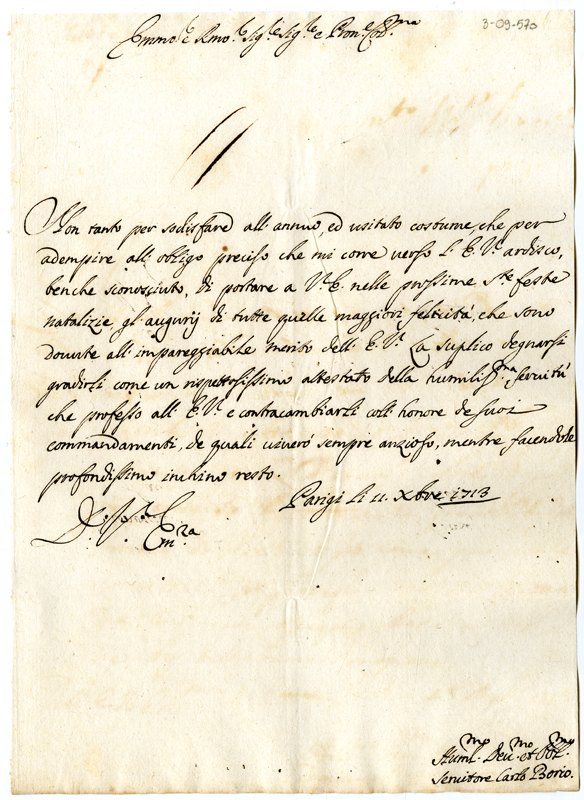 3-09-570
Emmo e Rmo Sigre Sigre e Prone Colmo
Non tanto per sodisfare all' annuo, ed usitato costume, che per
adempire all' obligo preciso che mi corre verso l' E. Va. ardisco,
benche sconosciuto, di portare a V. E. nelle prossime Ste feste
natalizie, gl' augurij di tutte quelle maggiori felicità, che sono
dovute all' impareggiabile merito dell' E. Va. La suplico degnarsi
gradirli come un rispettosissimo attestato della humilissma servitù
che professo all' E. Va. e contracambiarli coll' honore de suoi
commandamenti, de quali viverò sempre anzioso, mentre facendole
profondissimo inchino resto.
Parigi li 11. Xbre 1713
D. V.ra
Em.za
Huml.mo Dev.mo et Obl.mo
Servitore Carlo Borio.